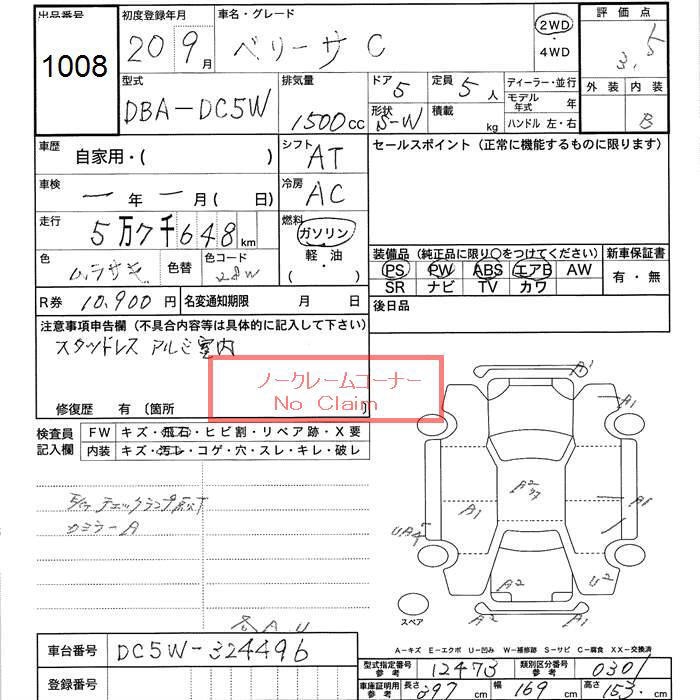 出品番号 初度登録年月 車名・グレード 評価点
1008 20 9月 ベリーサ C 2WD ・ 4WD 3.5
型式 排気量 ドア 5 定員 5人 ディーラー・並行 外装 内装
DBA-DC5W 1500cc 形状 S-W 積載 kg モデル年式 年 B
ハンドル 左・右
車歴 シフト AT セールスポイント(正常に機能するものに限ります)
自家用・( )
車検 冷房 AC
一年一月( 日)
走行 燃料
5万7千648km ガソリン
色 色替 色コード 軽・油 装備品(純正品に限り○をつけてください) 新車保証書
ムラサキ 28W ( ) PS PW ABS エアB AW 有・無
SR ナビ TV カワ
R券 10,900円 名変通知期限 月 日 後日品
注意事項申告欄(不具合内容等は具体的に記入して下さい)
スタッドレス アルミ室内
ノークレームコーナー
No Claim
修復歴 有〔箇所
検査員 FW キズ・飛石・ヒビ割・リペア跡・X要
記入欄 内装 キズ・汚レ・コゲ・穴・スレ・キレ・破レ
A1
A1
A2
A1
A1
A2
U2
A2
A2
スペア
各AU
A-キズ E-エクボ U-凹み W-補修跡 S-サビ C-腐食 XX-交換済
車台番号 DC5W-324496
型式指定番号 12473 類別区分番号 0301
登録番号 車庫証明用参考 長さ 397cm 幅 169cm 高さ 153cm